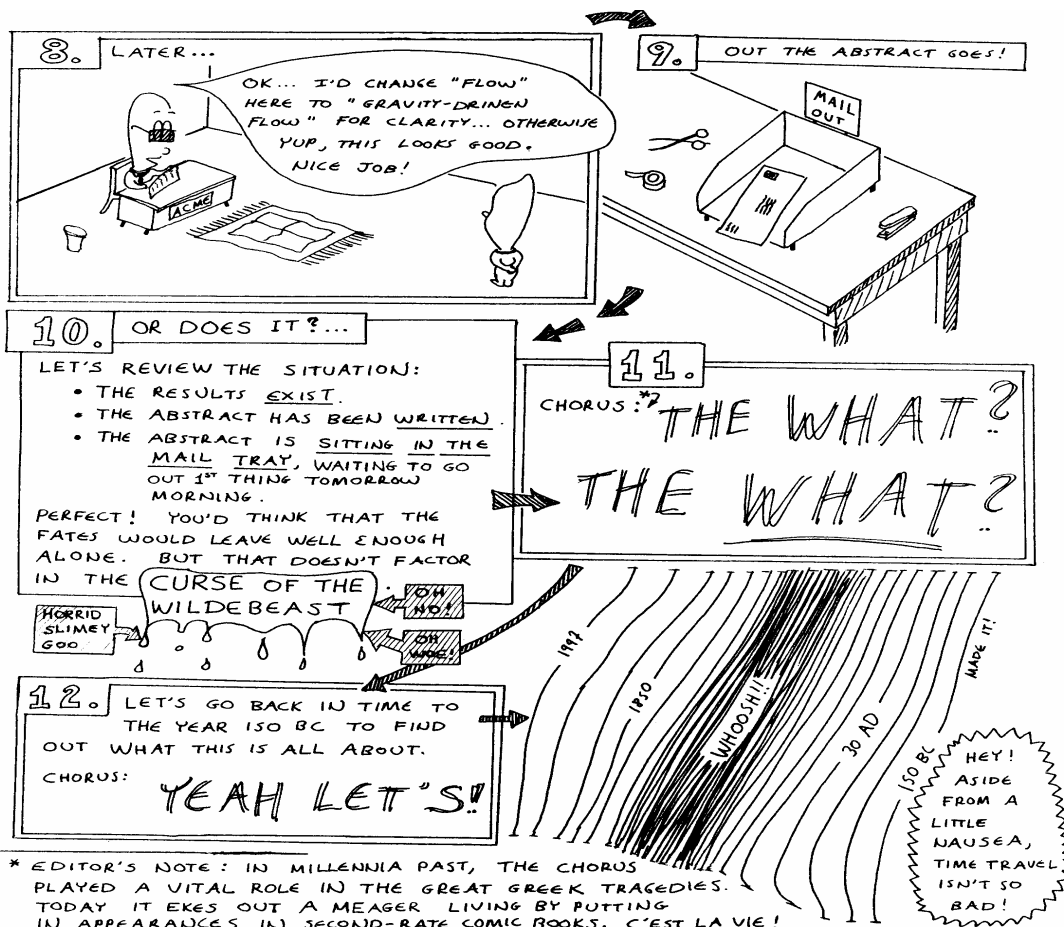 8.
LATER...
OK... I'D CHANGE "FLOW"
HERE TO "GRAVITY-DRINEN
FLOW" FOR CLARITY... OTHERWISE
YUP, THIS LOOKS GOOD.
NICE JOB!
ACME
9.
OUT THE ABSTRACT GOES!
MAIL
OUT
10.
OR DOES IT?...
LET'S REVIEW THE SITUATION:
• THE RESULTS EXIST.
• THE ABSTRACT HAS BEEN WRITTEN.
• THE ABSTRACT IS SITTING IN THE
MAIL TRAY, WAITING TO GO
OUT 1ST THING TOMORROW
MORNING.
PERFECT! YOU'D THINK THAT THE
FATES WOULD LEAVE WELL ENOUGH
ALONE. BUT THAT DOESN'T FACTOR
IN THE CURSE OF THE
WILDEBEAST.
OH
NO!
OH
WOE!
HORRID
SLIMEY
GOO
11.
CHORUS:* THE WHAT?
THE WHAT?
12.
LET'S GO BACK IN TIME TO
THE YEAR 150 BC TO FIND
OUT WHAT THIS IS ALL ABOUT.
CHORUS:
YEAH LET'S!
1997
1850
WHOOSH!!
30 AD
150 BC
MADE IT!
HEY!
ASIDE
FROM A
LITTLE
NAUSEA,
TIME TRAVEL
ISN'T SO
BAD!
* EDITOR'S NOTE: IN MILLENNIA PAST, THE CHORUS
PLAYED A VITAL ROLE IN THE GREAT GREEK TRAGEDIES.
TODAY IT EKES OUT A MEAGER LIVING BY PUTTING
IN APPEARANCES IN SECOND-RATE COMIC BOOKS. C'EST LA VIE!